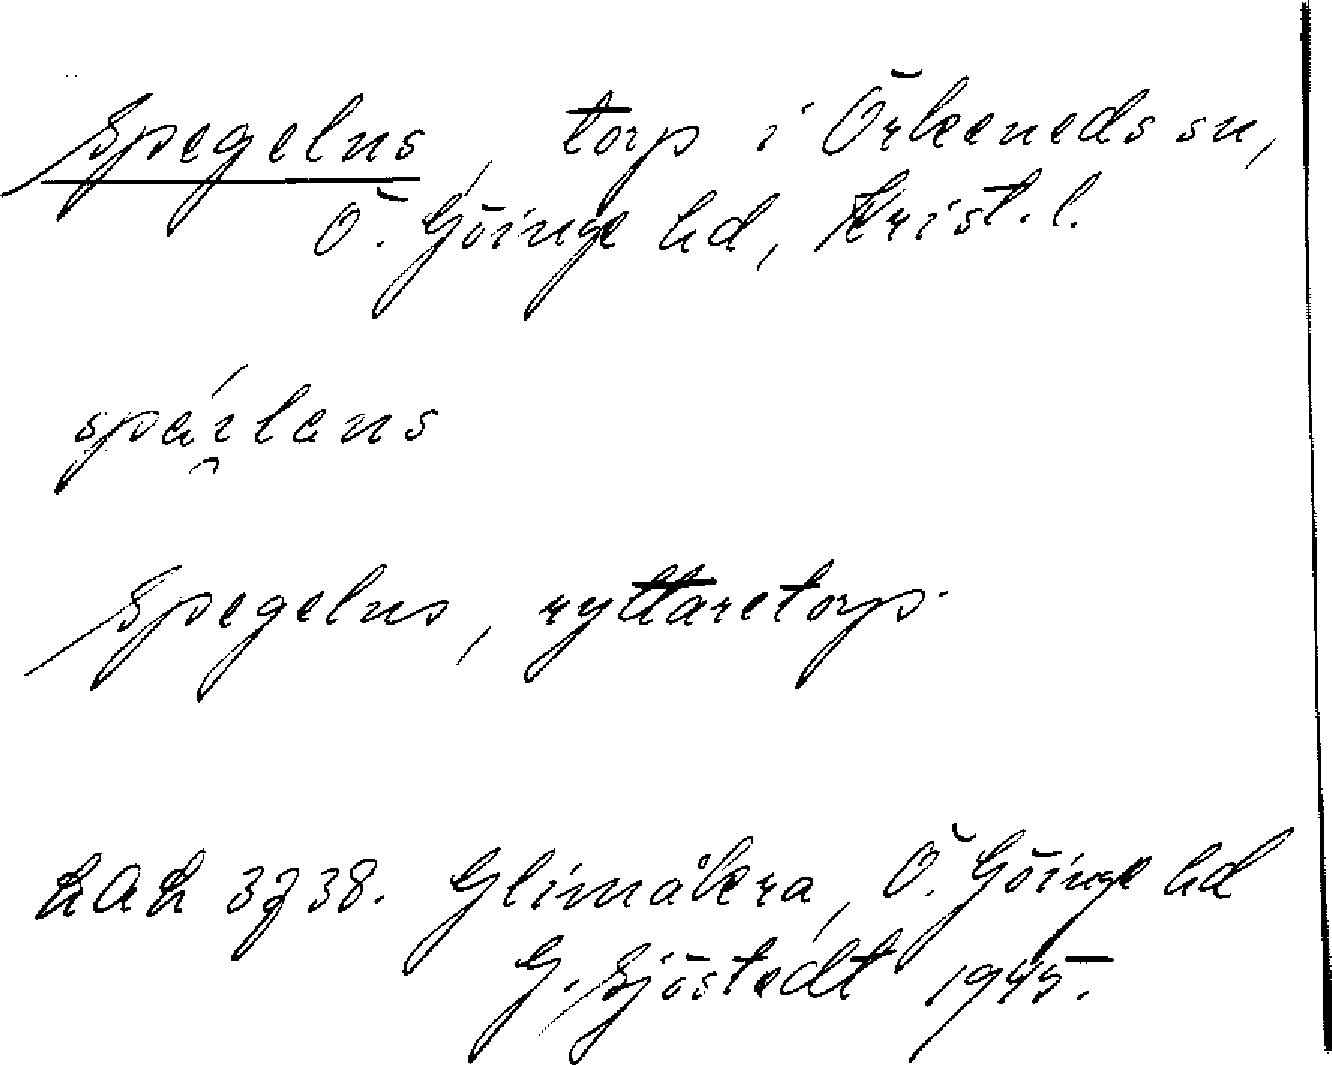 Spegelns, torp i Örkeneds sn,
Ö. Göinge hd, Krist. l.
Spegelns, ryttaretorp.
LAL 3738. Glimåkra, Ö. Göinge hd
G. Sjöstedt 1945.